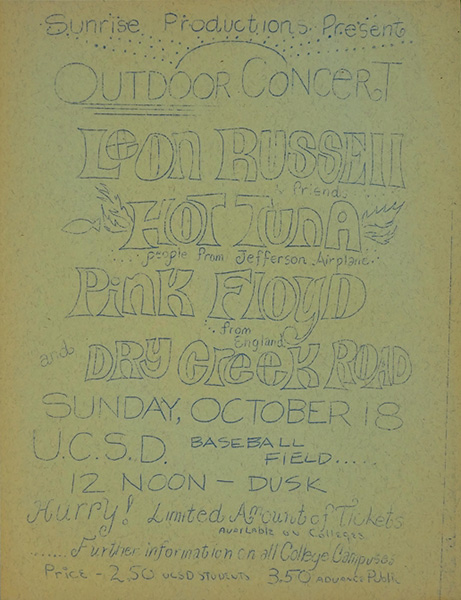 Sunrise Productions Present
OUTDOOR CONCERT
Leon RUSSEll
& friends
HOT TUNA
people from Jefferson Airplane
Pink Floyd
from
England
and DRY CReeK ROAD
SUNDAY, OCTOBER 18
U.C.S.D. BASEBALL
FIELD.....
12 NOON – DUSK
Hurry! Limited Amount of Tickets
AVAILABLE on Colleges
...... Further information on all College Campuses
Price - 2.50 UCSD STUDENTS 3.50 ADVANCE Public